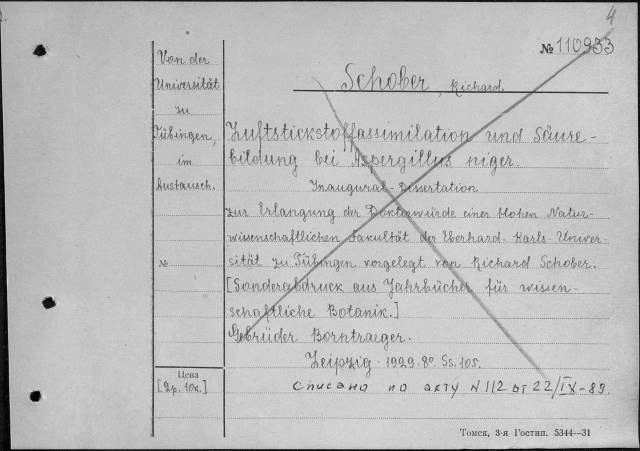 4
№ 110933
Von der
Universität
zu
Tübingen,
im
Austausch.
№
Цена
[2р. 10к.]
Schober, Richard.
Luftstickstoffassimilation und Säure-
bildung bei Aspergillus niger.
Inaugural-Dissertation
zur Erlangung der Doktorwürde einer Hohen Natur-
wissenschaftlichen Fakultät der Eberhard-Karls-Univer-
sität zu Tübingen vorgelegt von Richard Schober.
[Sonderabdruck aus Jahrbücher für wissen-
schaftliche Botanik.]
Gebrüder Borntraeger.
Leipzig. 1929. 8°. Ss. 105.
Списано по акту N 112 от 22/IX-89.
Томск, 3-я Гостип. 5344—31